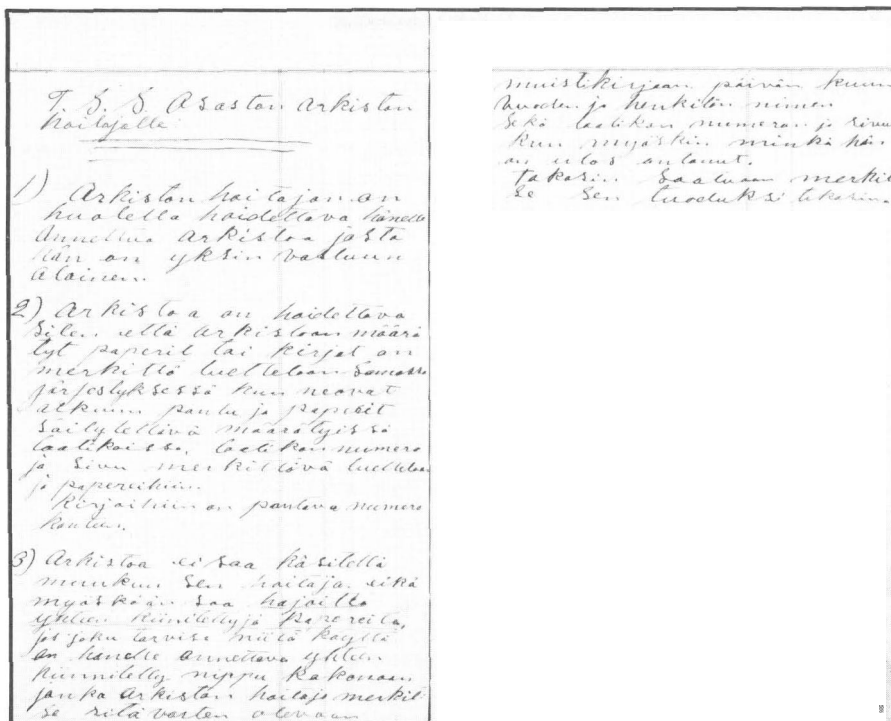 T. S. S. Osaston Arkiston
hoitajalle
1) Arkiston hoitajan on
huolella hoidettava hänelle
Annettua Arkistoa josta
hän on yksin vastuun
Alainen.
2) Arkistoa on hoidettava
siten että Arkistoon määrä
tyt paperit tai kirjat on
merkittä luetteloon samassa
järjestyksessä kun ne ovat
alkuun pantu ja paperit
säilytettävä määrätyissä
laatikoissa, laatikon numero
ja sivu merkittävä luetteloon
ja papereihin.
Kirjoihin on pantava numero
kanteen.
3) Arkistoa ei saa käsitellä
muu kun sen hoitaja. eikä
myöskään saa hajoitta
yhteen kiinitettyjä Papereita,
jos joku tarvise niitä käyttä
on hänelle annettava yhteen
kiinnitetty nippu kokonaan
jonka Arkiston hoitaja merkit
se sitä varten olevaan
muistikirjaan päivän kuun
vuoden ja henkilön nimen
sekä laatikon numeron ja sivu
kun myöskin minkä hän
on ulos antanut.
Takasin saatuaan merkit
se sen tuoduksi takasin.